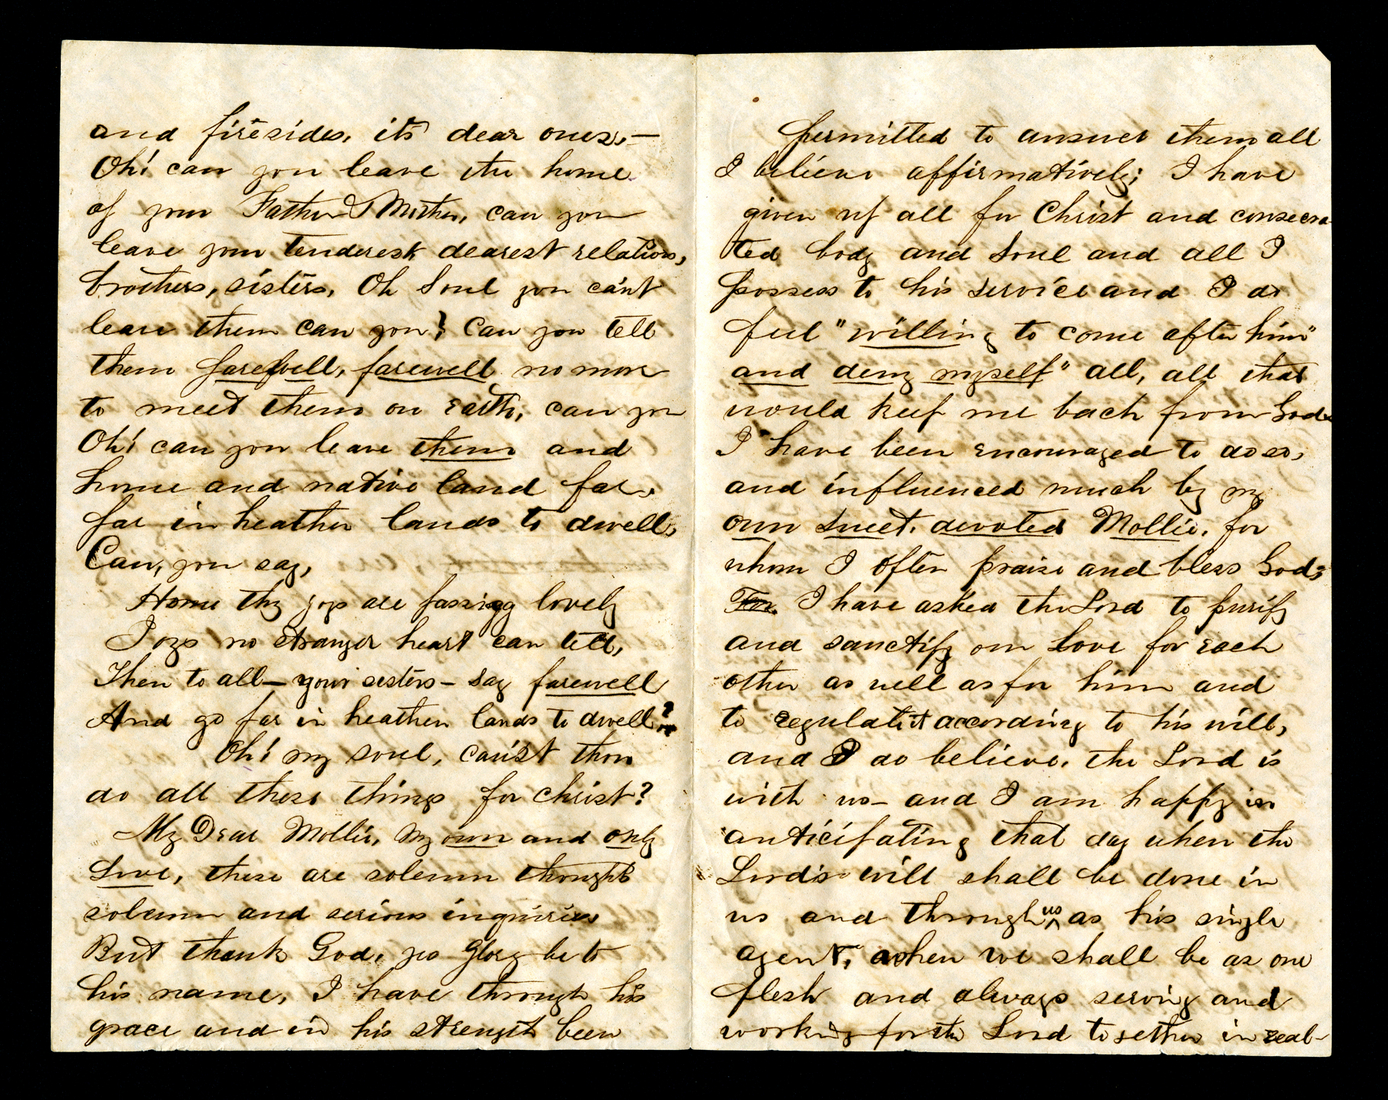 and firesides, its dear ones,—
Oh! can you leave the home
of your Father & Mother, can you
leave your tenderest dearest relations,
brothers, sisters, Oh Soul you can't
leave them can you? Can you tell
them farefell, farewell no more
to meet them on Earth, can you
Oh! can you leave them and
home and native land far,
far in heathen lands to dwell,
Can, you say,
Home thy joys are passing lovely
Joys no stranger heart can tell,
Then to all— your sisters— say farewell
And go far in heathen lands to dwell?
Oh! my soul, canst thou
do all these things for Christ?
My Dear Mollie, my own and only
Love, these are solemn thoughts
solemn and serious inquiries
But thank God, yes Glory be to
his name, I have through his
grace and in his strength been
permitted to answer them all
I believe affirmatively; I have
given up all for Christ and consecra
ted body and Soul and all I
possess to his service and I do
feel "willing to come after him"
and deny myself" all, all that
would keep me back from God.
I have been encouraged to do so,
and influenced much by my
own sweet, devoted Mollie, for
whom I often praise and bless God;
I have asked the Lord to purify
and sanctify our love for each
other as well as for him and
to regulate it according to his will,
and I do believe, the Lord is
with us— and I am happy in
anticipating that day when the
Lord's will shall be done in
us and through us as his single
agent, when we shall be as one
flesh and always serving and
working for the Lord together in real-